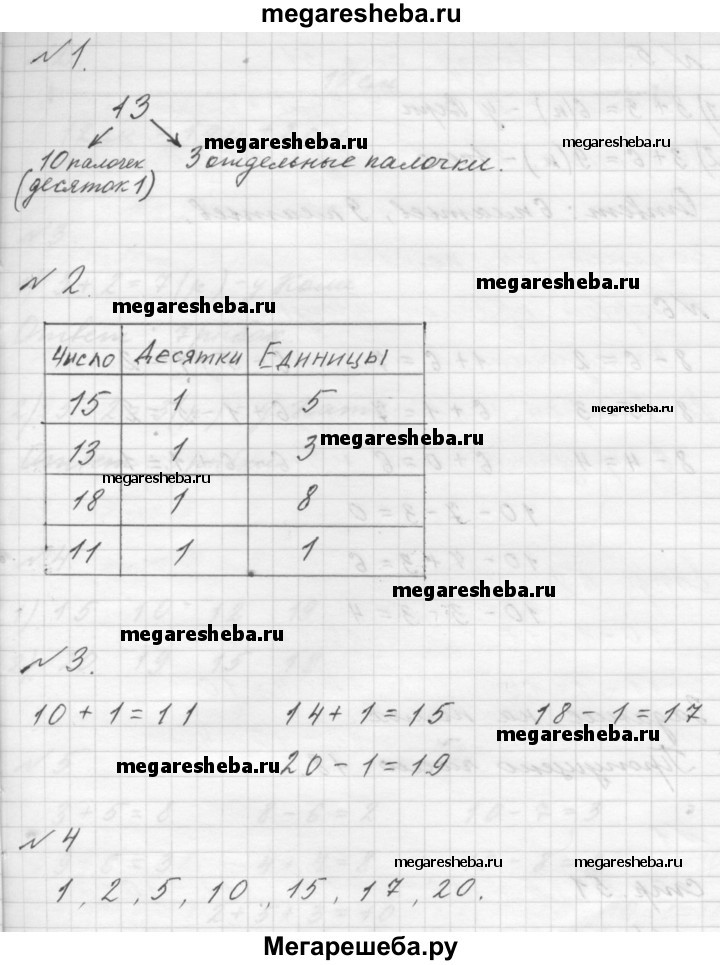 megaresheba.ru
№1.
13
megaresheba.ru
megaresheba.ru
10 палочек 3 отдельные палочки.
(десяток 1)
№2
megaresheba.ru
megaresheba.ru
Число Десятки Единицы
15 1 5
megaresheba.ru
13 1 3
megaresheba.ru
megaresheba.ru
18 1 8
11 1 1
megaresheba.ru
megaresheba.ru
№3.
10 + 1 = 11 14 + 1 = 15 18 - 1 = 17
megaresheba.ru
megaresheba.ru 20 - 1 = 19
№4
megaresheba.ru
megaresheba.ru
1, 2, 5, 10, 15, 17, 20.
Мегарешеба.ру